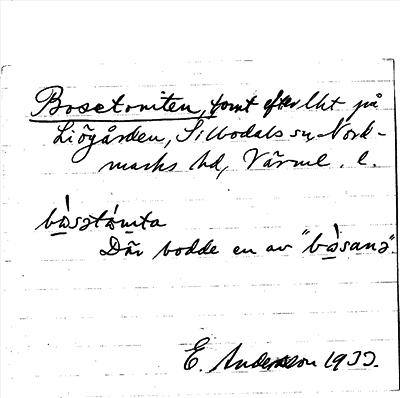 Bosetomten, tomt efter lht på
Liögården, Sillbodals sn, Nord-
marks hd, Värml. l.
bòsətómta
Där bodde en av "bòsanə".
E. Andersson 1933.